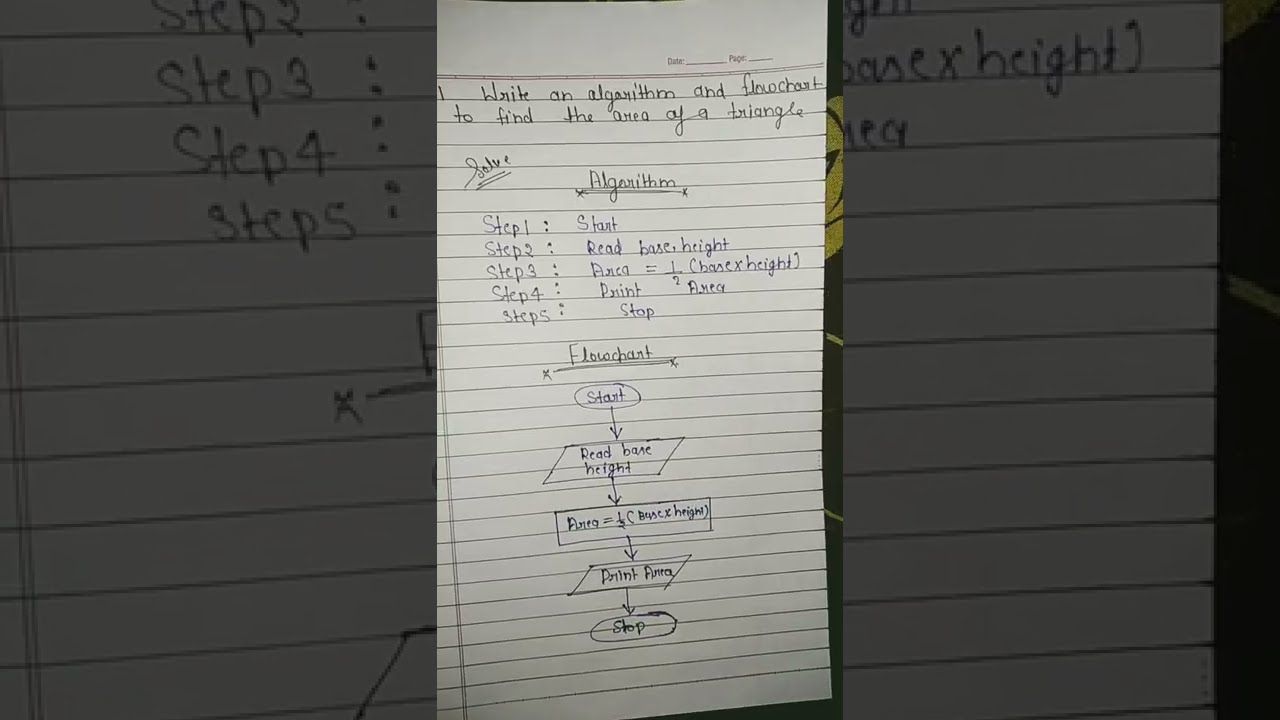 Date: ______ Page: ______
1 Write an algorithm and flowchart
to find the area of a triangle
Solve
Algorithm
Step1 : Start
Step2 : Read base, height
Step3 : Area = 1/2 (base x height)
Step4 : Print Area
Step5 : Stop
Flowchart
Start
Read base
height
Area = 1/2 (Base x height)
Print Area
Stop
Step2 :
Step3 :
Step4 :
Step5 :
base x height)